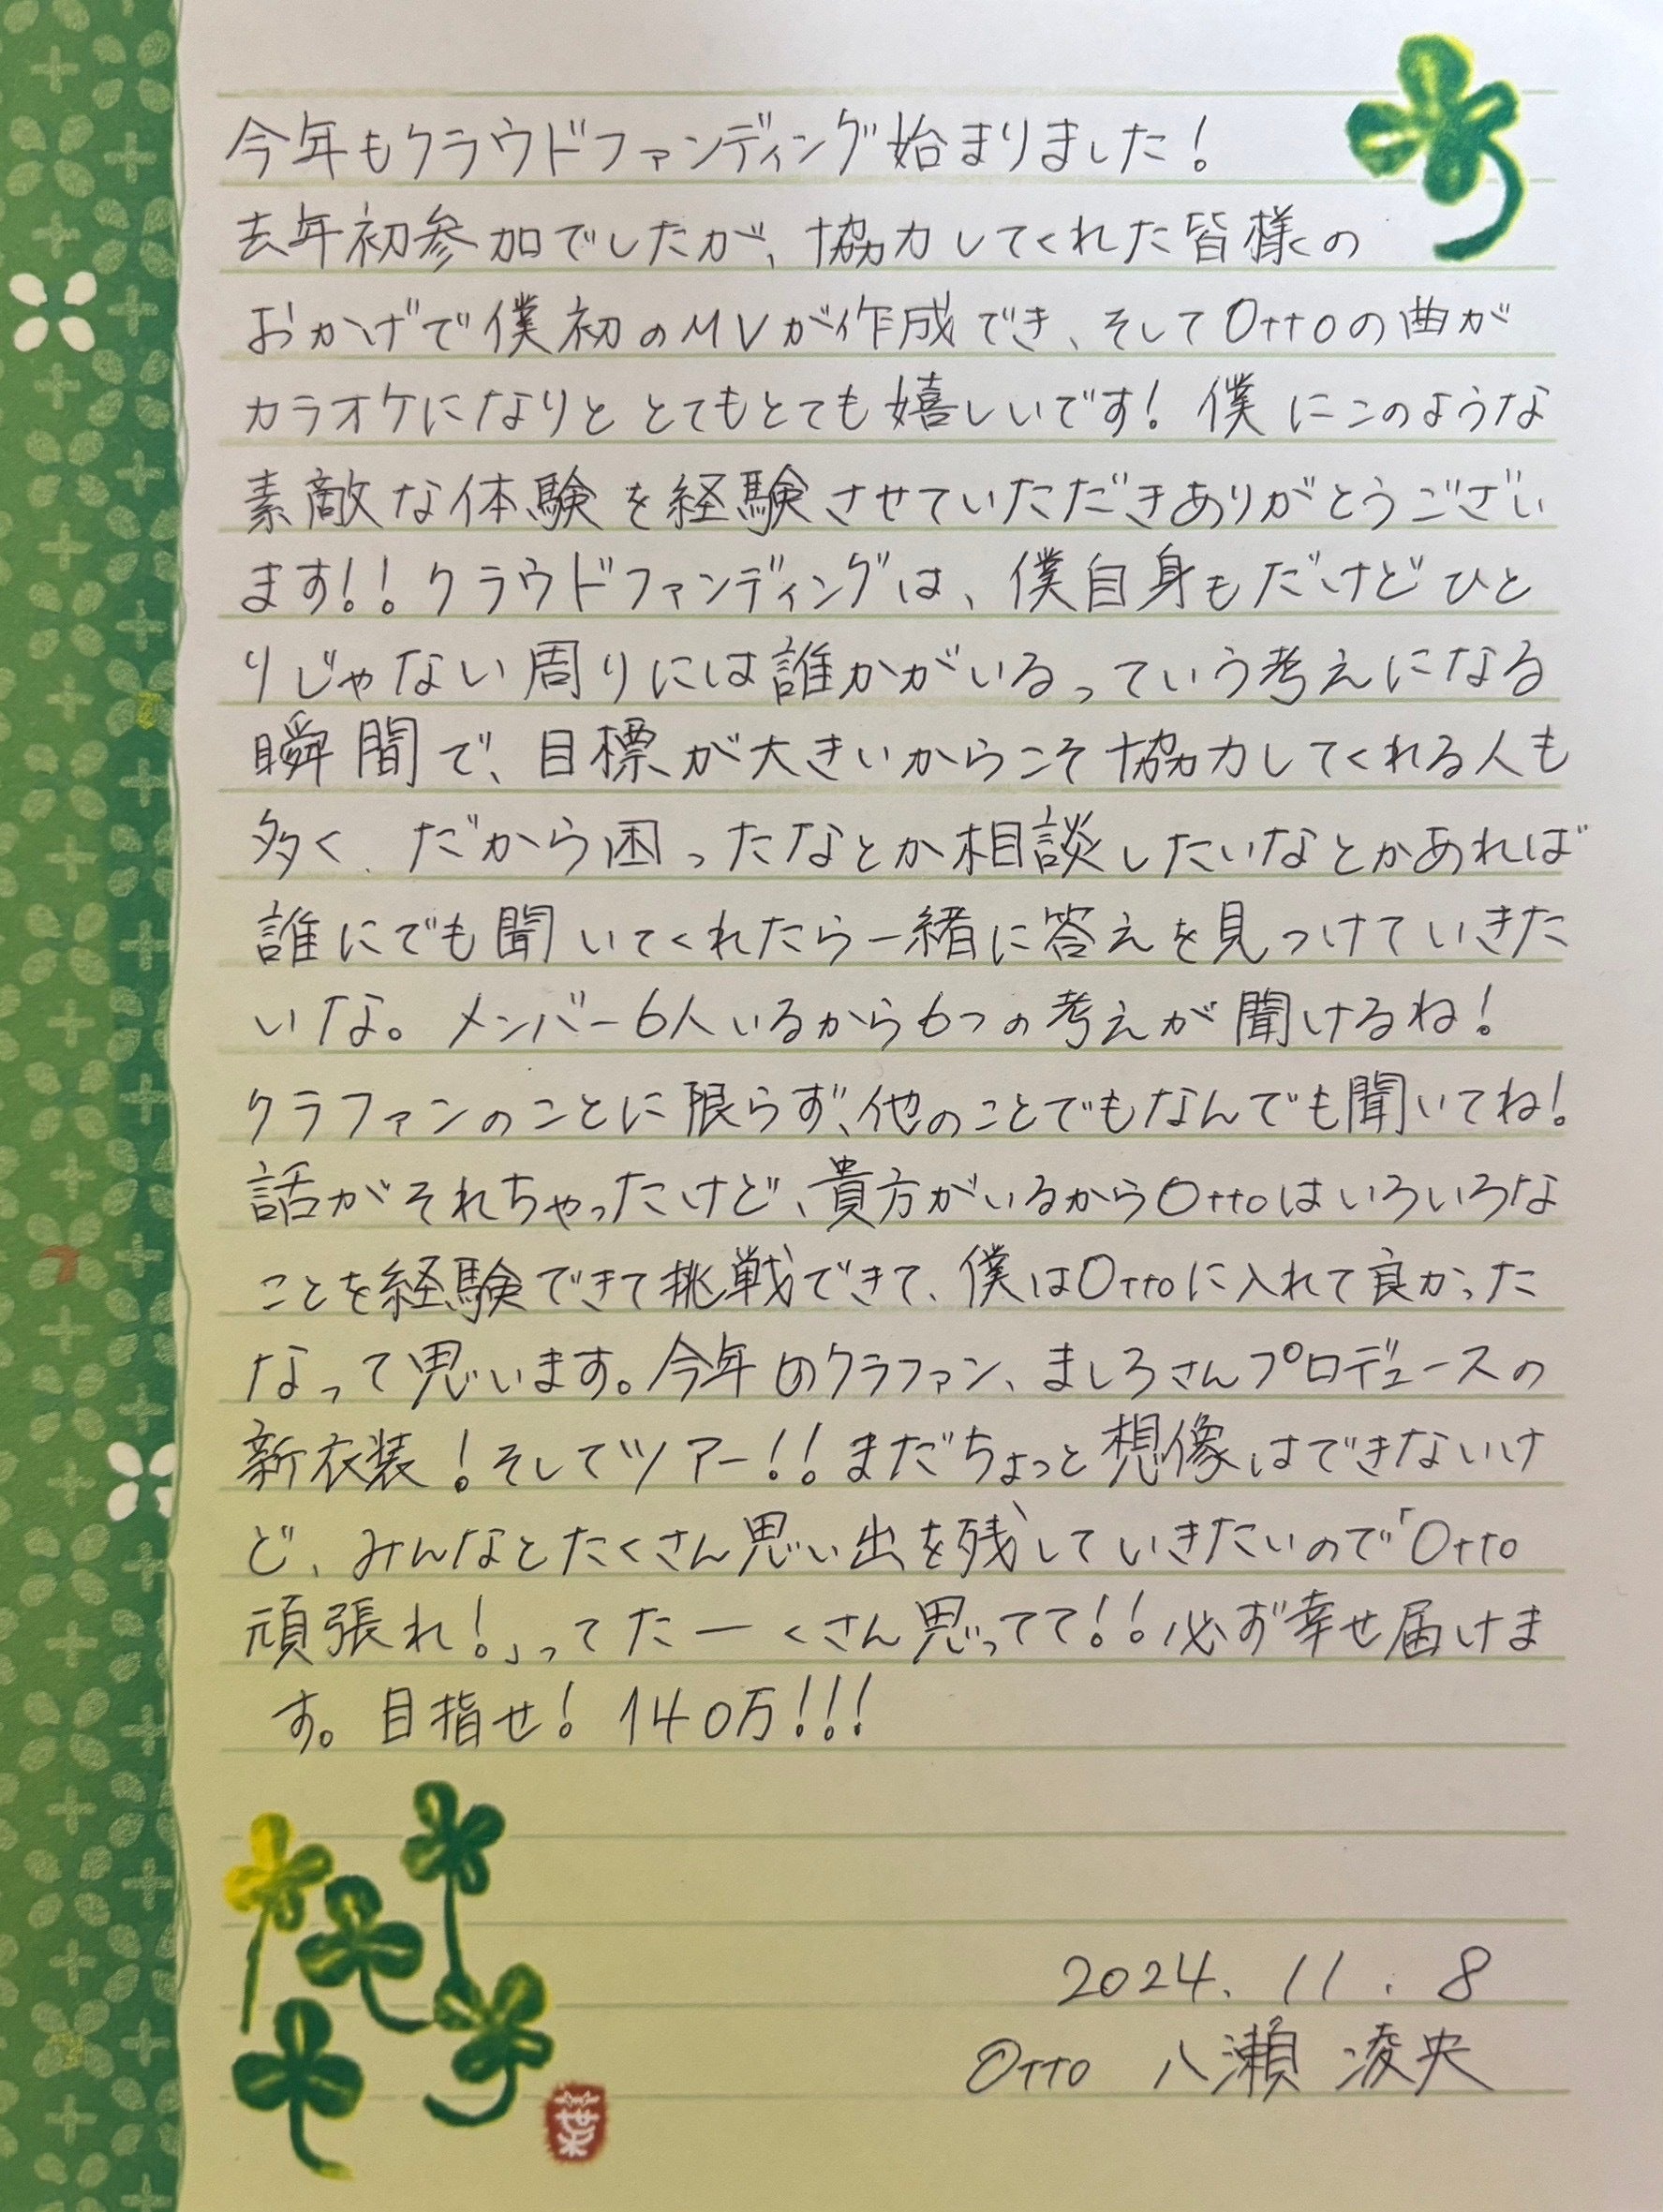 今年もクラウドファンディング始まりました！
去年初参加でしたが、協力してくれた皆様の
おかげで僕初のMVが作成でき、そしてOttoの曲が
カラオケになりと とてもとても嬉しいです！僕にこのような
素敵な体験を経験させていただきありがとうござい
ます！！クラウドファンディングは、僕自身もだけどひと
りじゃない周りには誰かがいるっていう考えになる
瞬間で、目標が大きいからこそ協力してくれる人も
多く、だから困ったなとか相談したいなとかあれば
誰にでも聞いてくれたら一緒に答えを見つけていきた
いな。メンバー6人いるから6つの考えが聞けるね！
クラファンのことに限らず、他のことでもなんでも聞いてね！
話がそれちゃったけど、貴方がいるからOttoはいろいろな
ことを経験できて挑戦できて、僕はOttoに入れて良かった
なって思います。今年のクラファン、ましろさんプロデュースの
新衣装！そしてツアー！！まだちょっと想像はできないけ
ど、みんなとたくさん思い出を残していきたいので「Otto
頑張れ！」ってたーくさん思ってて！！必ず幸せ届けま
す。目指せ！140万！！！
2024.11.8
Otto 八瀬 凌央
葉